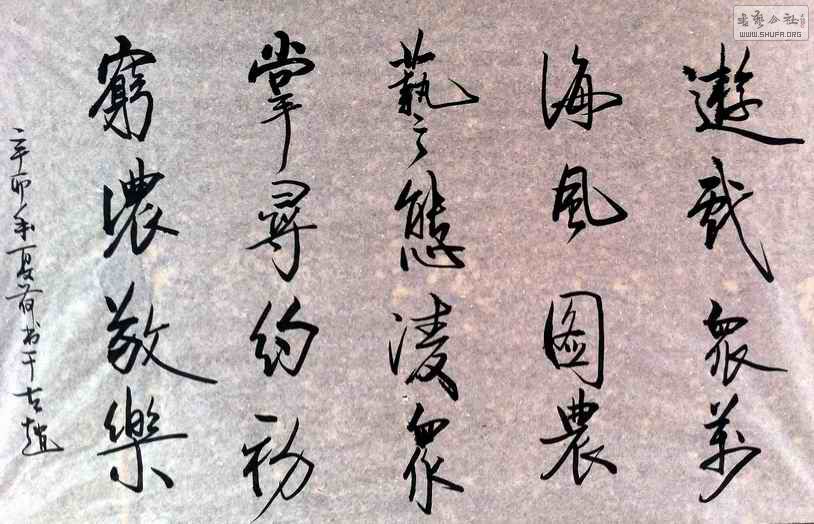 遊戏眾萬
海風圖農
藝之態凌眾
掌尋約初
窮濃敬樂
辛卯年夏荷书于古趙
书艺公社
WWW.SHUFA.ORG